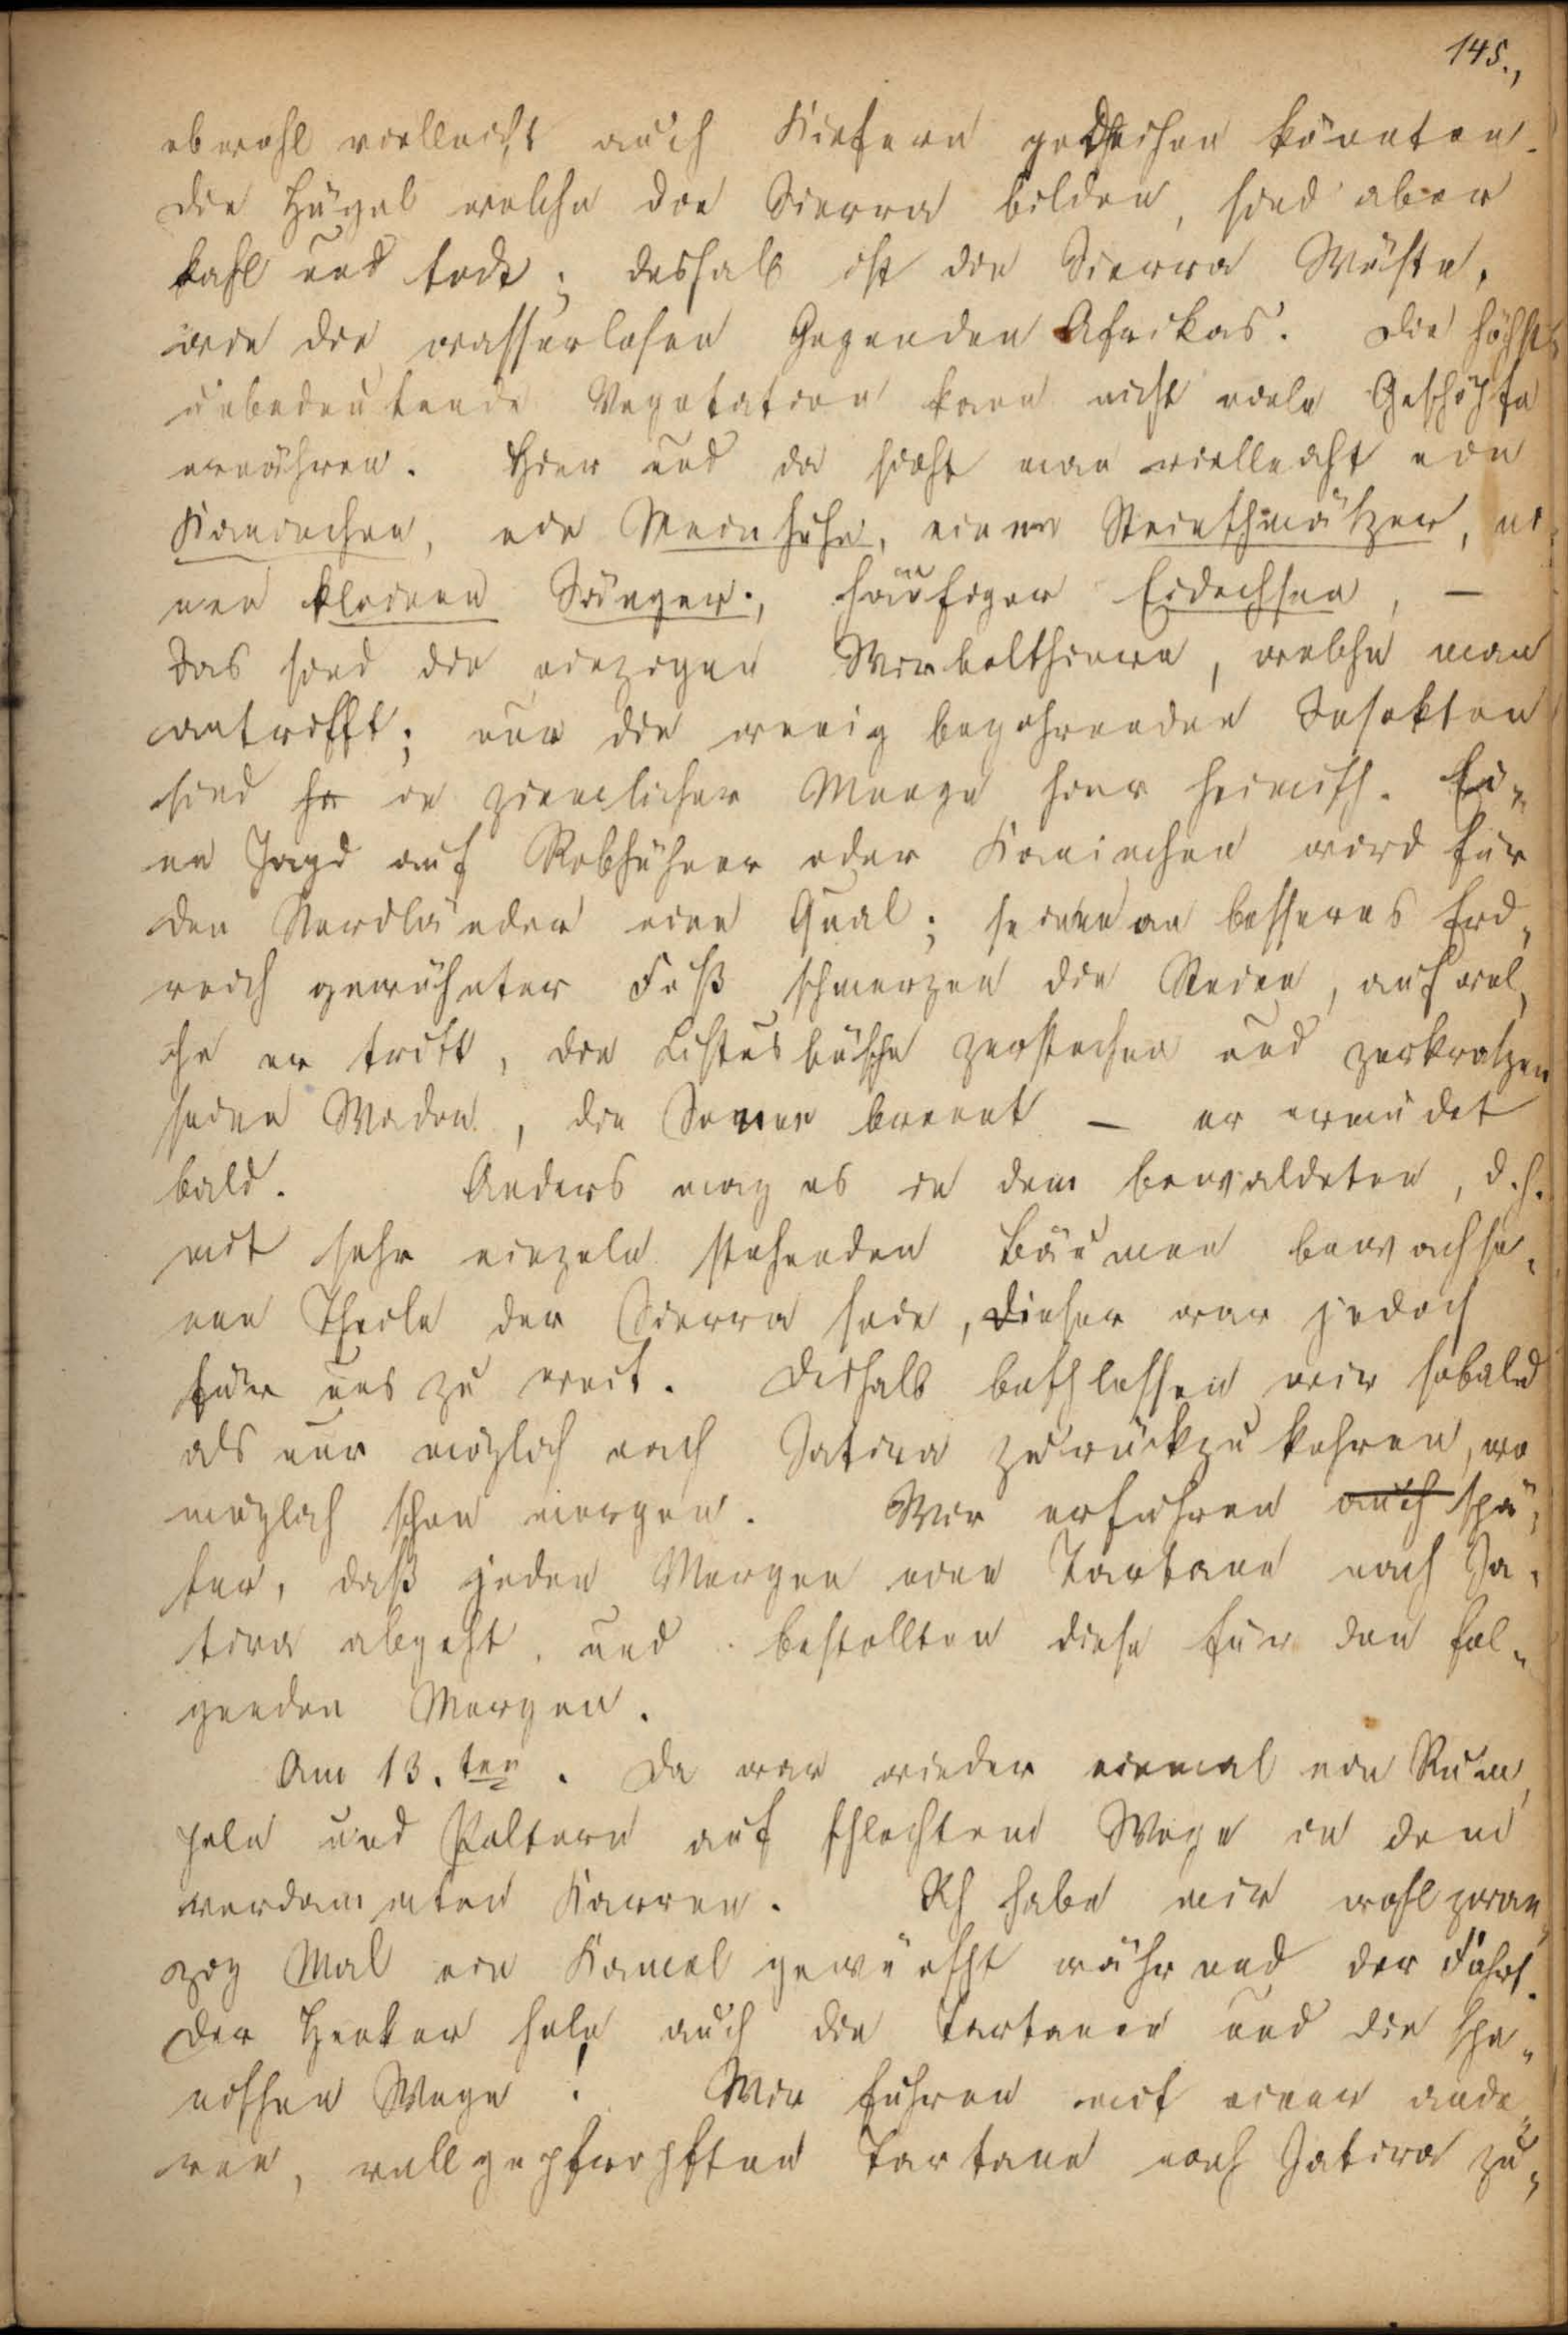 145.,
obwohl vielleicht auch Kiefern gedeihen könnten.
Die Hügel welche die Sierra bilden, sind aber
kahl und todt; deshalb ist die Sierra Wüste,
wie die wasserlosen Gegenden Afrikas. Die höchst
unbedeutende Vegetation kann nicht viele Geschöpfe
ernähren. Hier und da sieht man vielleicht ein
Kaninchen, ein Steinhuhn, einen Steinschmätzer, ei-
nen kleinen Sänger., häufiger Eidechsen, —
das sind die einzigen Wirbelthiere, welche man
antrifft; nur die wenig begehrenden Insekten
sind in ziemlicher Menge hier heimisch. Ei-
ne Jagd auf Rebhühner oder Kaninchen wird für
den Nordländer eine Qual; seinen an besseres Erd-
reich gewöhnter Fuß schmerzen die Steine, auf wel-
che er tritt, die Cistusbüsche zerstechen und zerkratzen
seine Waden, die Sonne brennt — er ermüdet
bald. Anders mag es in dem bewaldeten, d.h.
mit sehr einzeln stehenden Bäumen bewachse-
nen Theile der Sierra sein, dieser war jedoch
für uns zu weit. Deshalb beschlossen wir sobald
als nur möglich nach Jativa zurückzukehren, wo
möglich schon morgen. Wir erfuhren auch spä-
ter, daß jeden Morgen eine Tartane nach Ja-
tiva abgeht, und bestellten diese für den fol-
genden Morgen.
Am 13.ten. Da war wieder einmal ein Rum-
peln und Poltern auf schlechtem Wege in dem
verdammten Karren. Ich habe mir wohl zwan-
zig Mal ein Kamel gewünscht während der Fahrt.
Der Henker hole auch die Tartanen und die spa-
nischen Wege! Wir fuhren mit einer ande-
ren, vollgepfropften Tartane nach Jativa zu-